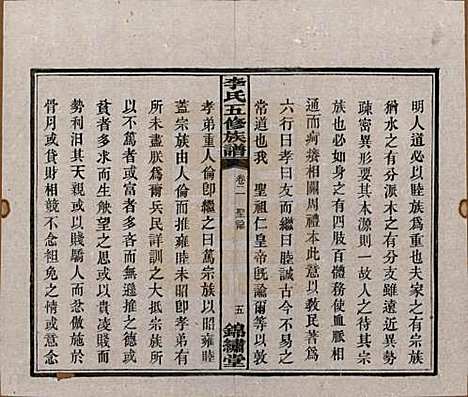 明人道必以睦族為重也夫家之有宗族
猶水之有分派木之有分支雖遠近異勢
疎密異形要其本源則一故人之待其宗
族也必如身之有四肢百體務使血脈相
通而疴癢相關周禮本此意以敎民著為
六行曰孝曰友而繼曰睦誠古今不易之
常道也我 聖祖仁皇帝旣諭爾等以敦
李氏五修族譜 卷二 聖諭 五 錦繡堂
孝弟重人倫卽繼之曰篤宗族以昭雍睦
蓋宗族由人倫而推雍睦未昭卽孝弟有
所未盡朕為爾兵民詳訓之大抵宗族所
以不篤者或富者多吝而無解推之德或
貧者多求而生觖望之思或以貴凌賤而
勢利汨其天親或以賤驕人而忿傲施於
骨月或貨財相競不念袒免之情或意念